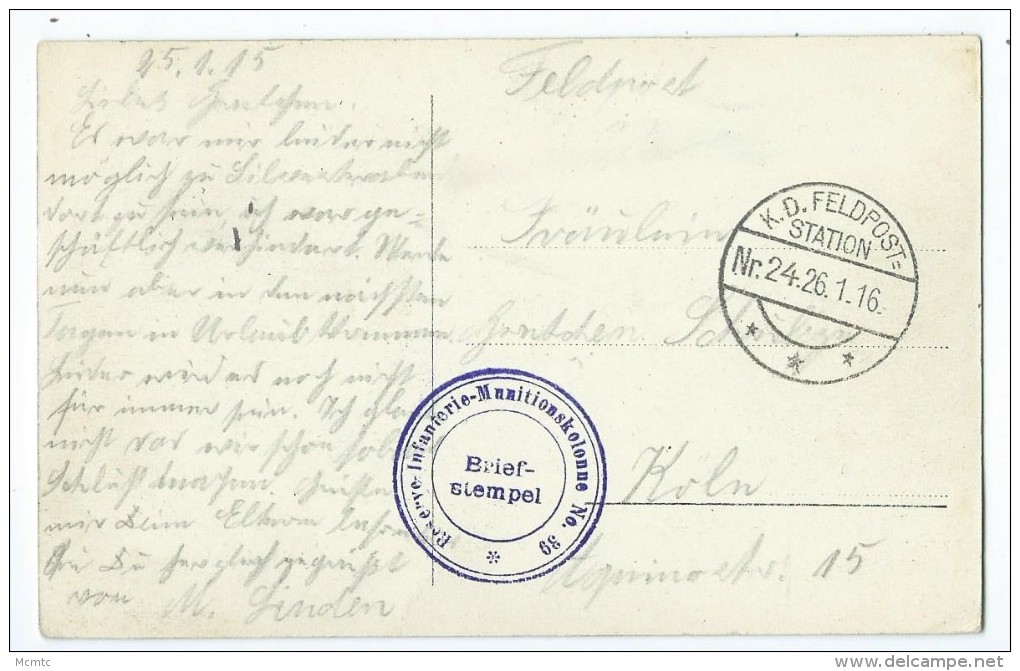 25.1.15
Liebes Gretchen.
Es war mir leider nicht
möglich zu
dort zu sein, ich war ge=
schäftlich verhindert. Werde
nun aber in den nächsten
Tagen in Urlaub kommen
Leider wird es noch nicht
für immer sein. Ich
nicht das wir schon
Schluß machen.
mir Deine Eltern
Du herzlich gegrüßt
von M. Linden
Feldpost
Fräulein
Gretchen
Köln
15
K.D. FELDPOST=
STATION
Nr. 24. 26.1.16.
Reserve-Infanterie-Munitionskolonne No. 39
Brief-
stempel
Mcmtc
delcampe.net